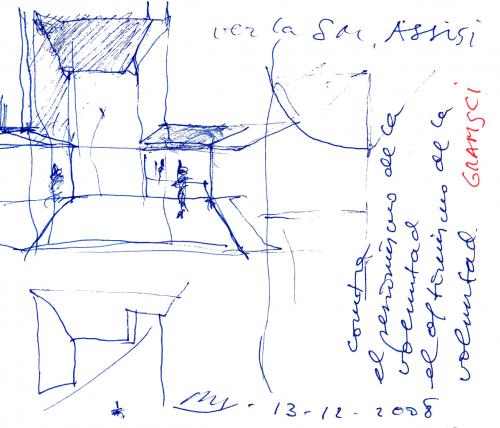 ver la S M. ASSISI
contra
el pesimismo de la
voluntad
el optimismo de la
voluntad
GRAMSCI
13-12-2008